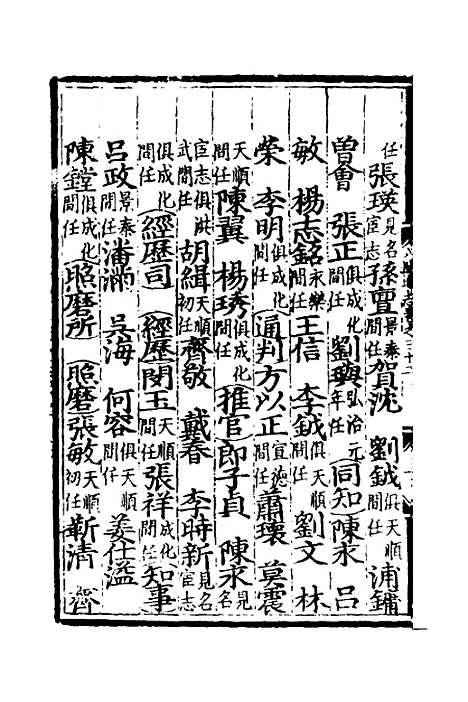 任張瑛見名宦志孫亶景泰間任賀沈 劉鉞俱天順間任浦鏞
曽㑹 張正俱成化間任劉璵弘治元年任(同知)陳永 呂
敏 楊志銘永樂間任王信 李鉞俱天順間任劉文 林
榮 李明俱成化間任(通判)方以正宣德間任蕭瓌 莫震
天順間任陳翼 楊琇俱成化間任(推官)郎子貞 陳永見名
宦志俱洪武間任胡緝天順初任齊敬 戴春 李時新見名宦志
俱成化間任(經歴司)(經歴)閔玉天順間任張祥成化間任(知事)
呂政景泰間任潘滿 吳海 何容俱天順間任姜仕溢
陳鏜俱成化間任(照磨所)(照磨)張敏天順初任靳清 齊